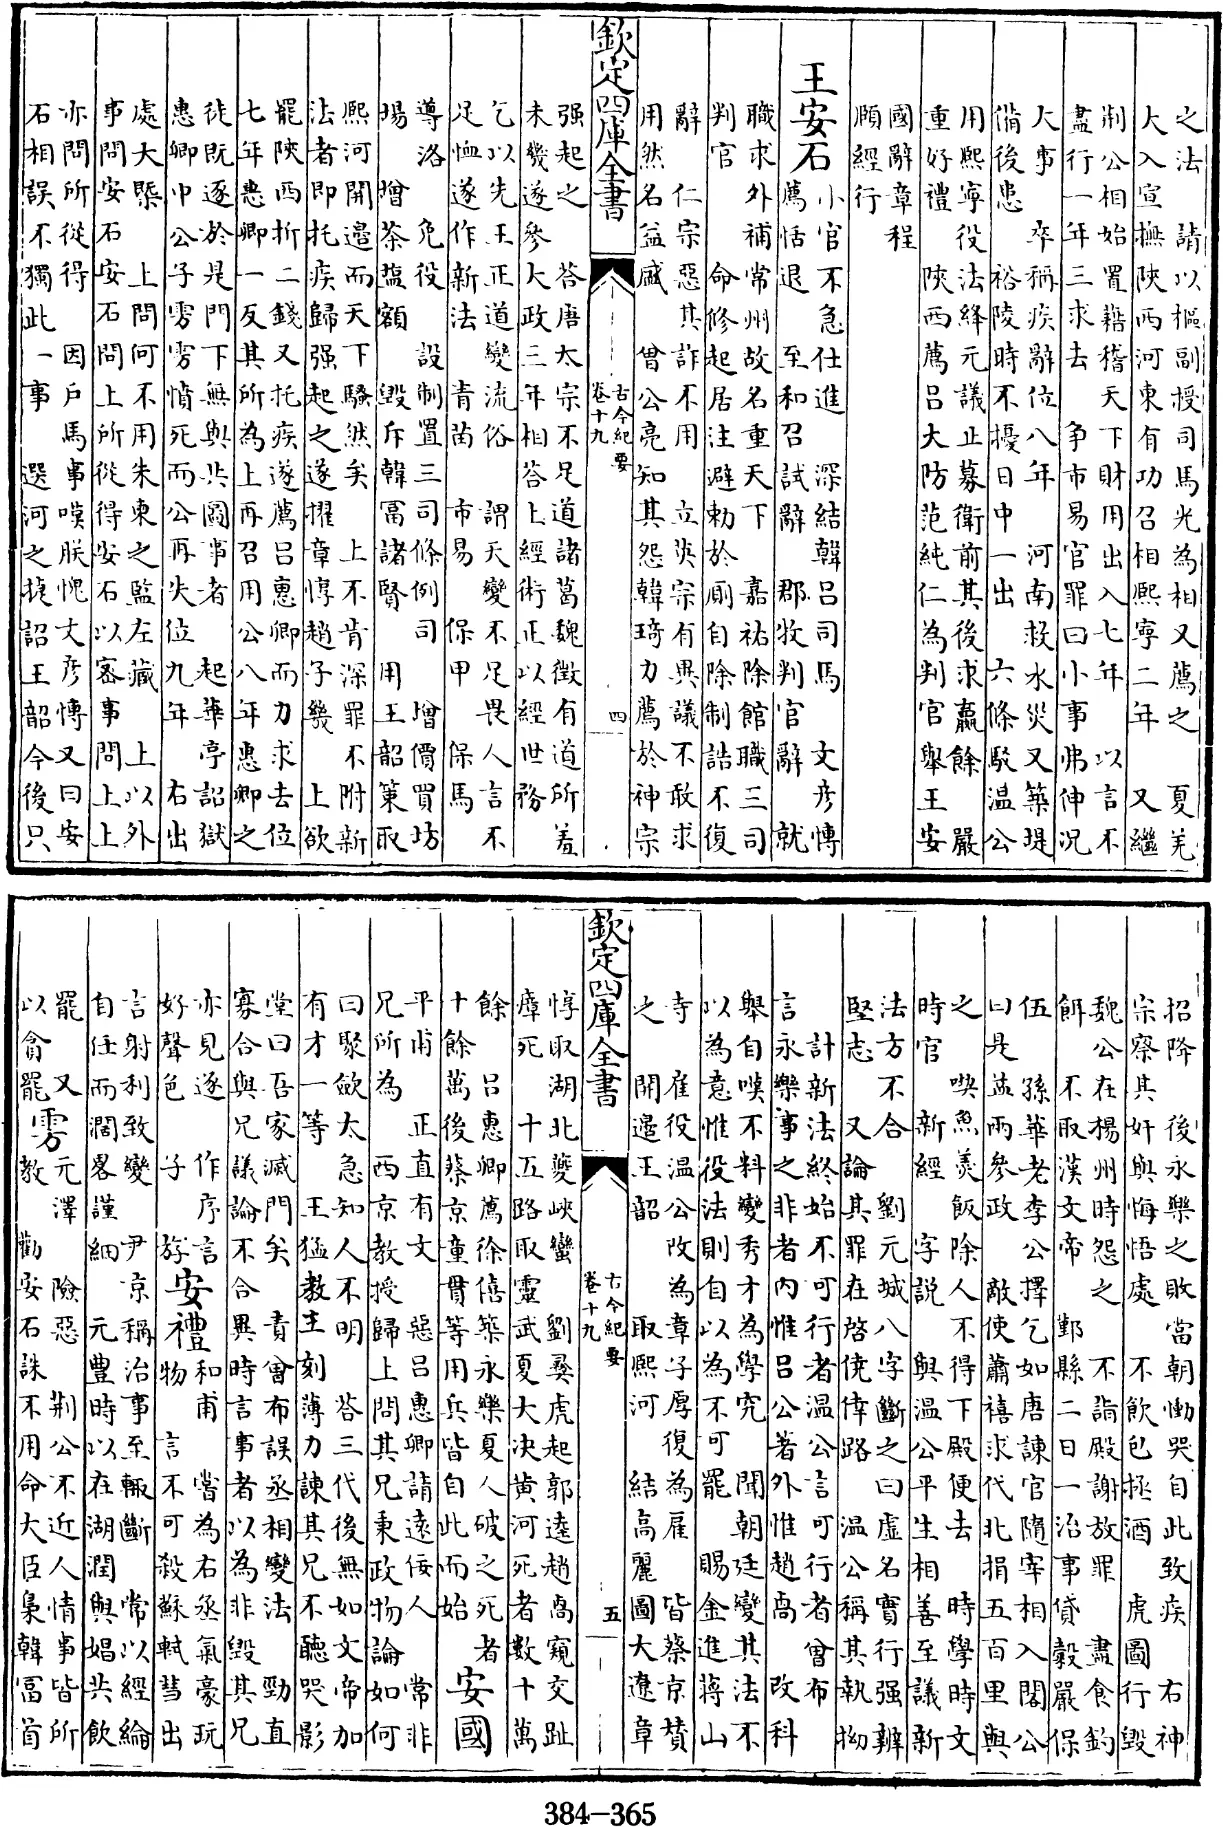 之法　請以樞副授司馬光為相又薦之　夏羌
大入宣撫陝西河東有功召相熙寧二年　又繼
荊公相始置藉稽天下財用出入七年　以言不
盡行一年三求去　争市易官罪曰小事弗伸况
大事　卒稱疾辭位八年　河南救水災又築堤
備後患　裕陵時不擾日中一出　六條駁温公
用熙寧役法絳元議止募衛前其後求羸餘　嚴
重好禮　陝西薦吕大防范純仁為判官舉王安
國辭章程
頗經行
王安石
小官不急仕進　深結韓吕司馬　文彦愽
薦恬退　至和召試辭　郡牧判官辭　就
職求外補常州故名重天下　嘉祐除館職三司
判官　命修起居注避勅於厠自除制誥不復
辭　仁宗惡其詐不用　立英宗有異議不敢求
用然名益盛　曾公亮知其怨韓琦力薦於神宗
欽定四庫全書
古今紀要
卷十九
四
强起之　荅唐太宗不足道諸葛魏徵有道所羞
未幾遂參大政三年相荅上經術正以經世務
乞以先王正道變流俗　謂天變不足畏人言不
足恤遂作新法　青苗　市易　保甲　保馬
導洛　免役　設制置三司條例司　增價買坊
場　增茶鹽額　毀斥韓冨諸賢　用王韶䇿取
熙河開邉而天下騷然矣　上不肯深罪不附新
法者即托疾歸强起之遂擢章惇趙子幾　上欲
罷陝西折二錢又托疾遂薦吕惠卿而力求去位
七年惠卿一反其所為上再召用公八年惠卿之
徒既逐於是門下無與共圖事者　起華亭詔獄
惠卿中公子雱雱憤死而公再失位九年　右出
處大槩　上問何不用朱柬之監左藏　上以外
事問安石安石問上所從得安石以宻事問上上
亦問所從得　因戶馬事嘆朕愧文彦愽又曰安
石相誤不獨此一事　選河之捷詔王韶今後只
招降　後永樂之敗當朝慟哭自此致疾　右神
宗察其奸與悔悟處　不飲包拯酒　虎圖行毀
魏公在楊州時怨之　不詣殿謝放罪　盡食釣
餌　不取漢文帝　鄞縣二日一治事貸榖嚴保
伍　孫華老李公擇乞如唐諫官隨宰相入閣公
曰是益兩參政　敵使蕭禧求代北捐五百里與
之　喫魚羮飯除人不得下殿便去　時學時文
時官　新經　字說　與温公平生相善至議新
法方不合　劉元城八字斷之曰虚名實行强辨
堅志　又論其罪在啓僥倖路　温公稱其執拗
計新法終始不可行者温公言可行者曾布
言永樂事之非者内惟吕公著外惟趙卨　改科
舉自嘆不料變秀才為學究　聞朝廷變其法不
以為意惟役法則自以為不可罷　賜金進蔣山
寺　雇役温公改為章子厚復為雇　皆蔡京賛
之　開邉王韶　取熙河　結高麗圖大遼章
欽定四庫全書
古今紀要
卷十九
五
惇取湖北夔峽蠻　劉彛虎起郭逵趙卨窺交趾
瘴死　十五路取靈武夏大决黄河死者數十萬
餘　吕惠卿薦徐禧築永樂夏人破之死者
十餘萬後蔡京童貫等用兵皆自此而始
安國
平甫　正直有文　惡吕惠卿請遠佞人　常非
兄所為　西京教授歸上問其兄秉政物論如何
曰聚歛太急知人不明　荅三代後無如文帝加
有才一等　王猛教主刻薄力諫其兄不聽哭影
堂曰吾家滅門矣　責曾布誤丞相變法　勁直
寡合與兄議論不合異時言事者以為非毀其兄
亦見逐　作序言
好聲色　子　斿
安禮
和甫　嘗為右丞氣豪玩
物　言不可殺蘇軾彗出
言射利致變　尹京稱治事至輒斷　常以經綸
自任而濶畧謹細　元豐時以在湖潤與娼共飲
罷　又
以貪罷
雱
元澤　險惡　荆公不近人情事皆所
教　勸安石誅不用命大臣梟韓冨首
384-365